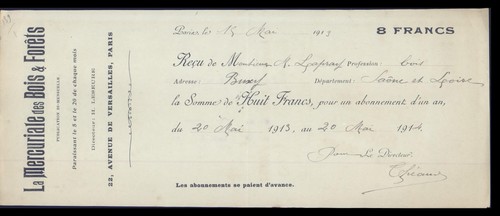 La Mercuriale des Bois & Forêts
PUBLICATION BI-MENSUELLE
Paraissant le 5 et le 20 de chaque mois
Directeur: H. LESEURE
22, AVENUE DE VERSAILLES, PARIS
Paris, le 15 Mai 1913
8 FRANCS
Reçu de Monsieur Profession: bois
Adresse: Département: Saône et Loire
la Somme de Huit Francs, pour un abonnement d'un an,
du 20 Mai 1913 au 20 Mai 1914
Pour Le Directeur,
Les abonnements se paient d'avance.